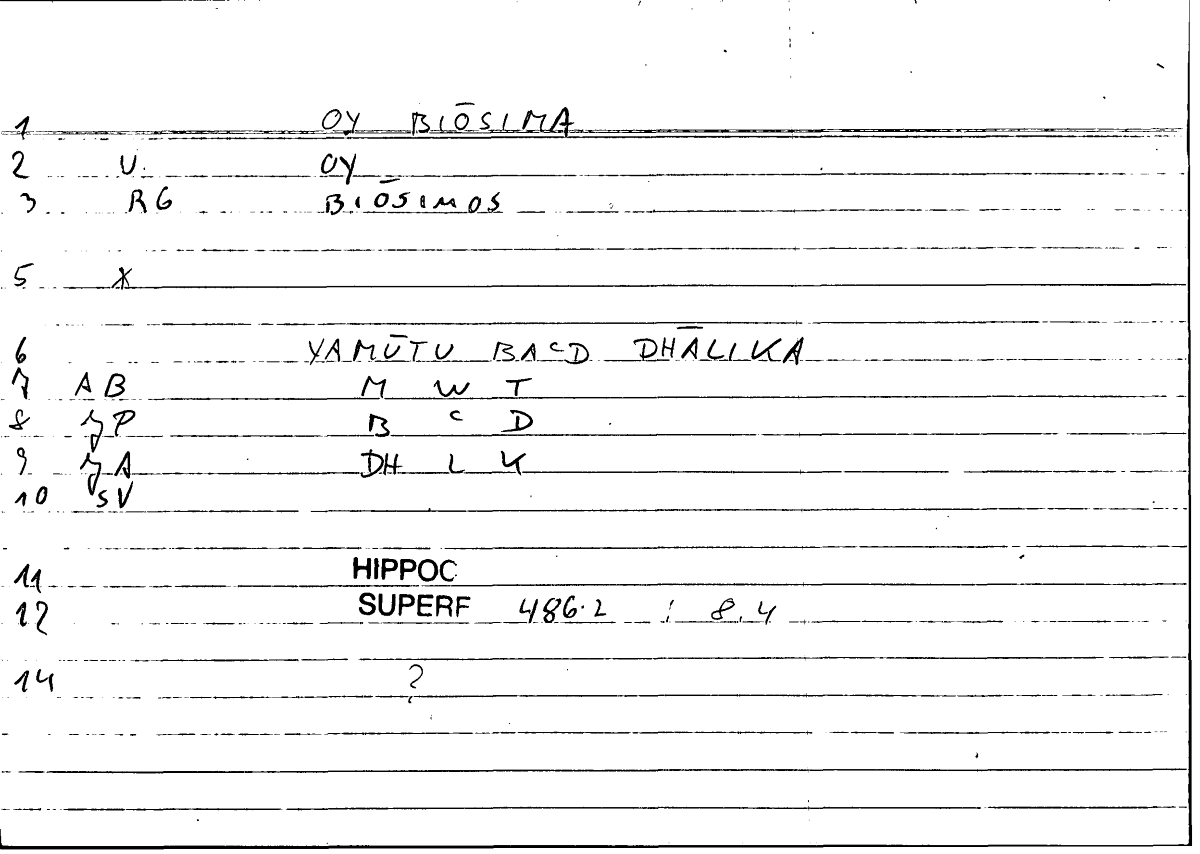 1 OY BIŌSIMA
2 V. OY
3 RG BIŌSIMOS
5 X
6 YAMŪTU BAꜤD DHĀLIKA
7 AB M W T
8 JP B Ꜥ D
9 JA DH L K
10 SV
11 HIPPOC
12 SUPERF 486.2 ; 8.4
14 ?